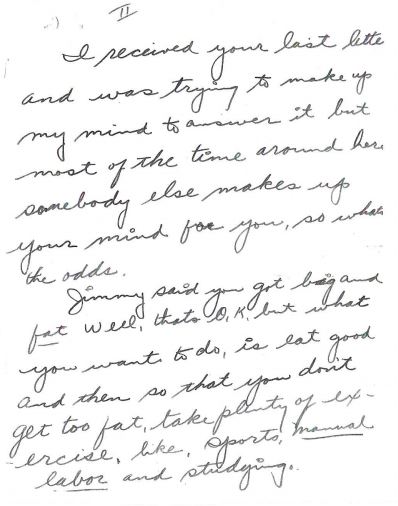 II
I received your last lette
and was trying to make up
my mind to answer it but
most of the time around here
somebody else makes up
your mind for you, so whats
the odds.
Jimmy said you got big and
fat well, thats O.K. but what
you want to do, is eat good
and then so that you don't
get too fat, take plenty of ex-
ercise, like, sports, manual
labor and studying.